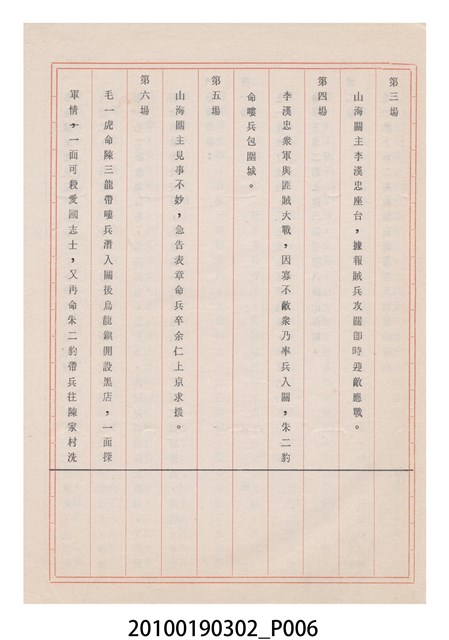 第三場
山海關主李漢忠座台，據報賊兵攻關卽時迎敵應戰。
第四場
李漢忠衆軍與匪賊大戰，因寡不敵衆乃率兵入關，朱二豹
命嘍兵包圍城。
第五場
山海關主見事不妙，急告表章命兵卒余仁上京求援。
第六場
毛一虎命陳三龍帶嘍兵潛入關後烏龍鎭開設黑店，一面探
軍情，一面可殺愛國志士，又再命朱二豹帶兵往陳家村洗
20100190302_P006